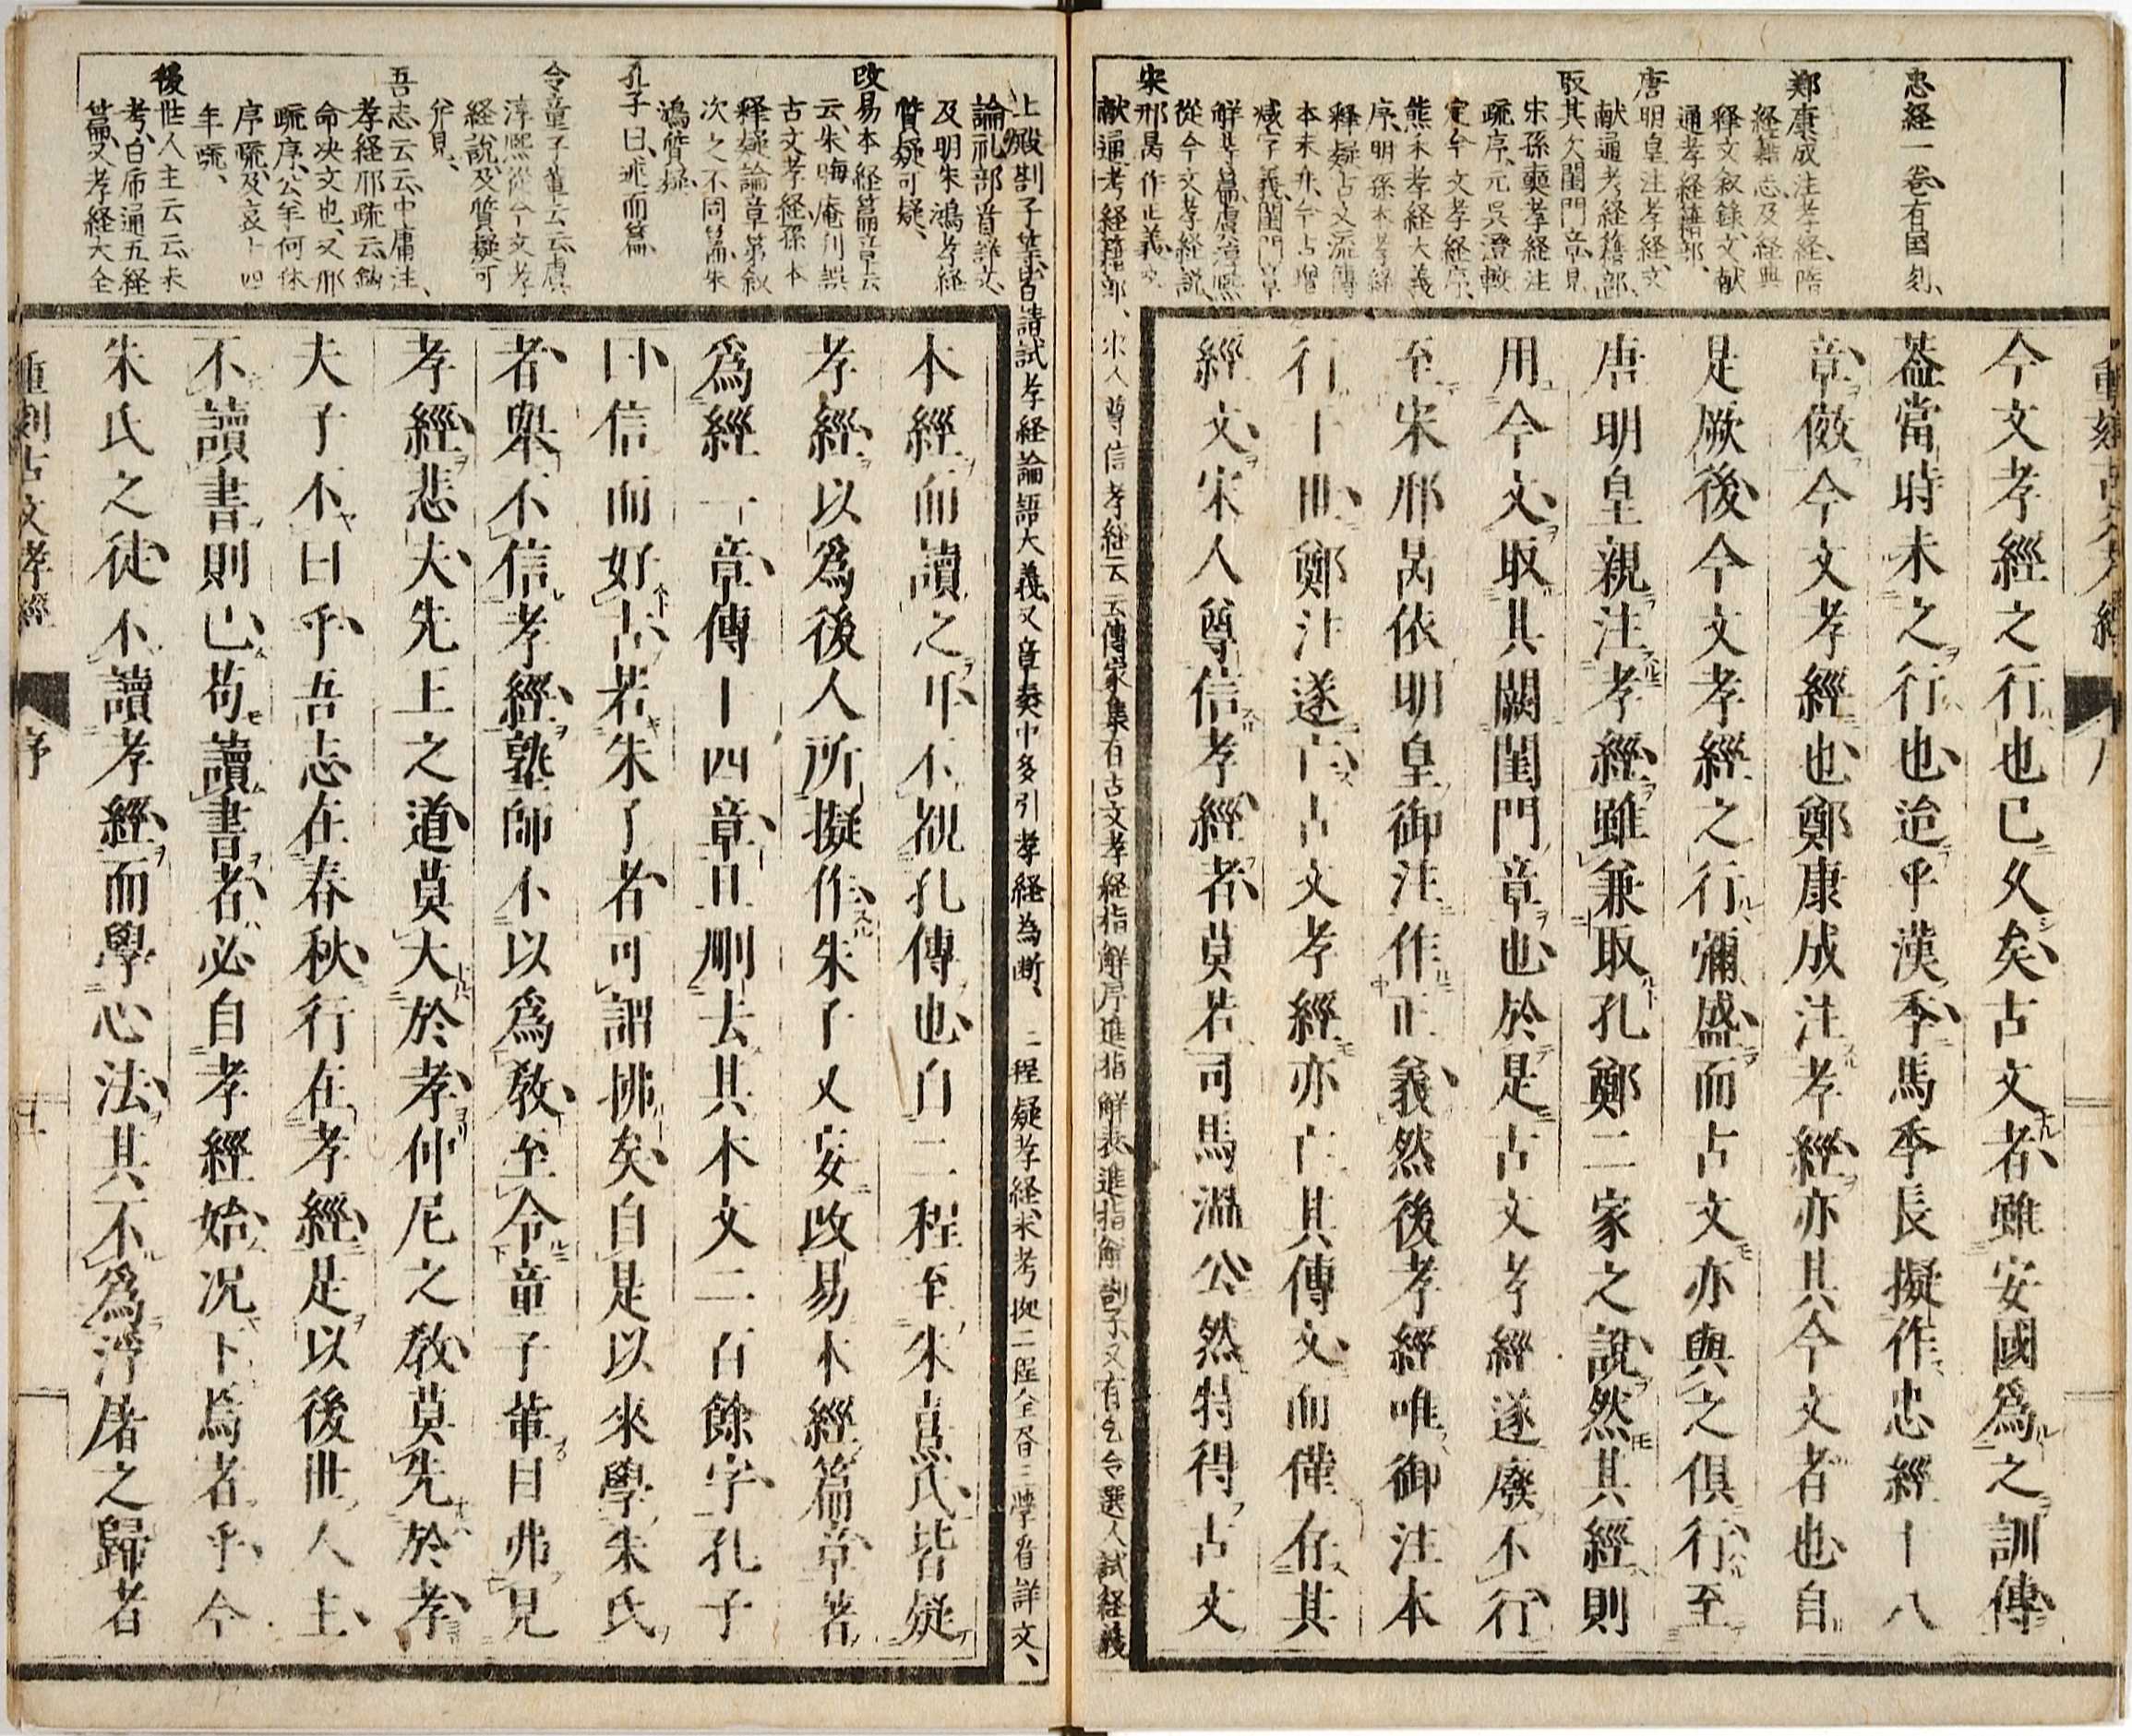 忠経一巻有国刻、
鄭康成注孝経、隋
経籍志、及経典
釈文叙録、文献
通考経籍部、
唐明皇注孝経、文
献通考経籍部、
取其欠閨門章、見
宋孫奭孝経注
疏序、元呉澄較
定今文孝経序、
熊禾孝経大義
序、明孫本孝経
釈疑、古文流傳
本末、亦今古増
減字義、閨門章
解、
従今文孝経説、
宋邢昺作正義、文
献通考経籍部、宋人尊信孝経云云、傳家集有古文孝経指解序、進指解表、進指解劄子、又有乞令選人試経義
今文孝經之行也已久矣古文者雖安國爲之訓傳
葢當時未之行也迨乎漢季馬季長擬作忠經十八
章倣今文孝經也鄭康成注孝經亦其今文者也自
是厥後今文孝經之行彌盛而古文亦與之俱行至
唐明皇親注孝經雖兼取孔鄭二家之説然其經則
用今文取其闕閨門章也於是古文孝經遂廢不行
至宋邢昺依明皇御注作正義然後孝經唯御注本
行于世鄭注遂亡古文孝經亦亡其傳文而僅存其
經文宋人尊信孝經者莫若司馬温公然特得古文
重刻古文孝經
上殿劄子、皆請試孝経論語大義、又章奏中多引孝経為断、二程疑孝経、未考、拠二程全書二学者詳文、
論礼部首
及明朱鴻孝経
質疑可疑、
改易本経篇章云
云、朱晦庵刊誤
古文孝経、孫本
釈疑論章第叙
次之不同篇、朱
鴻質疑、
孔子曰、述而篇、
令童子輩云云、虞
淳熙従今文孝
経説、及質疑可
幷見、
吾志云云、中庸注、
孝経邢疏云、鉤
命決文也、又邢
疏序、公羊何休
序疏、及哀十四
年疏、
後世人主云云、未
考、白席通五経
篇、又孝経大全
本經而讀之耳不覩孔傳也自二程至朱熹氏皆疑
孝經以爲後人所擬作朱子又妄改易本經篇章著
爲經一章傳十四章且刪去其本文二百餘字孔子
曰信而好古若朱子者可謂拂矣自是以來學朱氏
者舉不信孝經塾師不以爲敎至令童子輩曰弗見
孝經悲夫先王之道莫大於孝仲尼之敎莫先於孝
夫子不曰乎吾志在春秋行在孝經是以後世人主
不讀書則已苟讀書者必自孝經始况下焉者乎今
朱氏之徒不讀孝經而學心法其不爲浮屠之歸者
重刻古文孝經
序